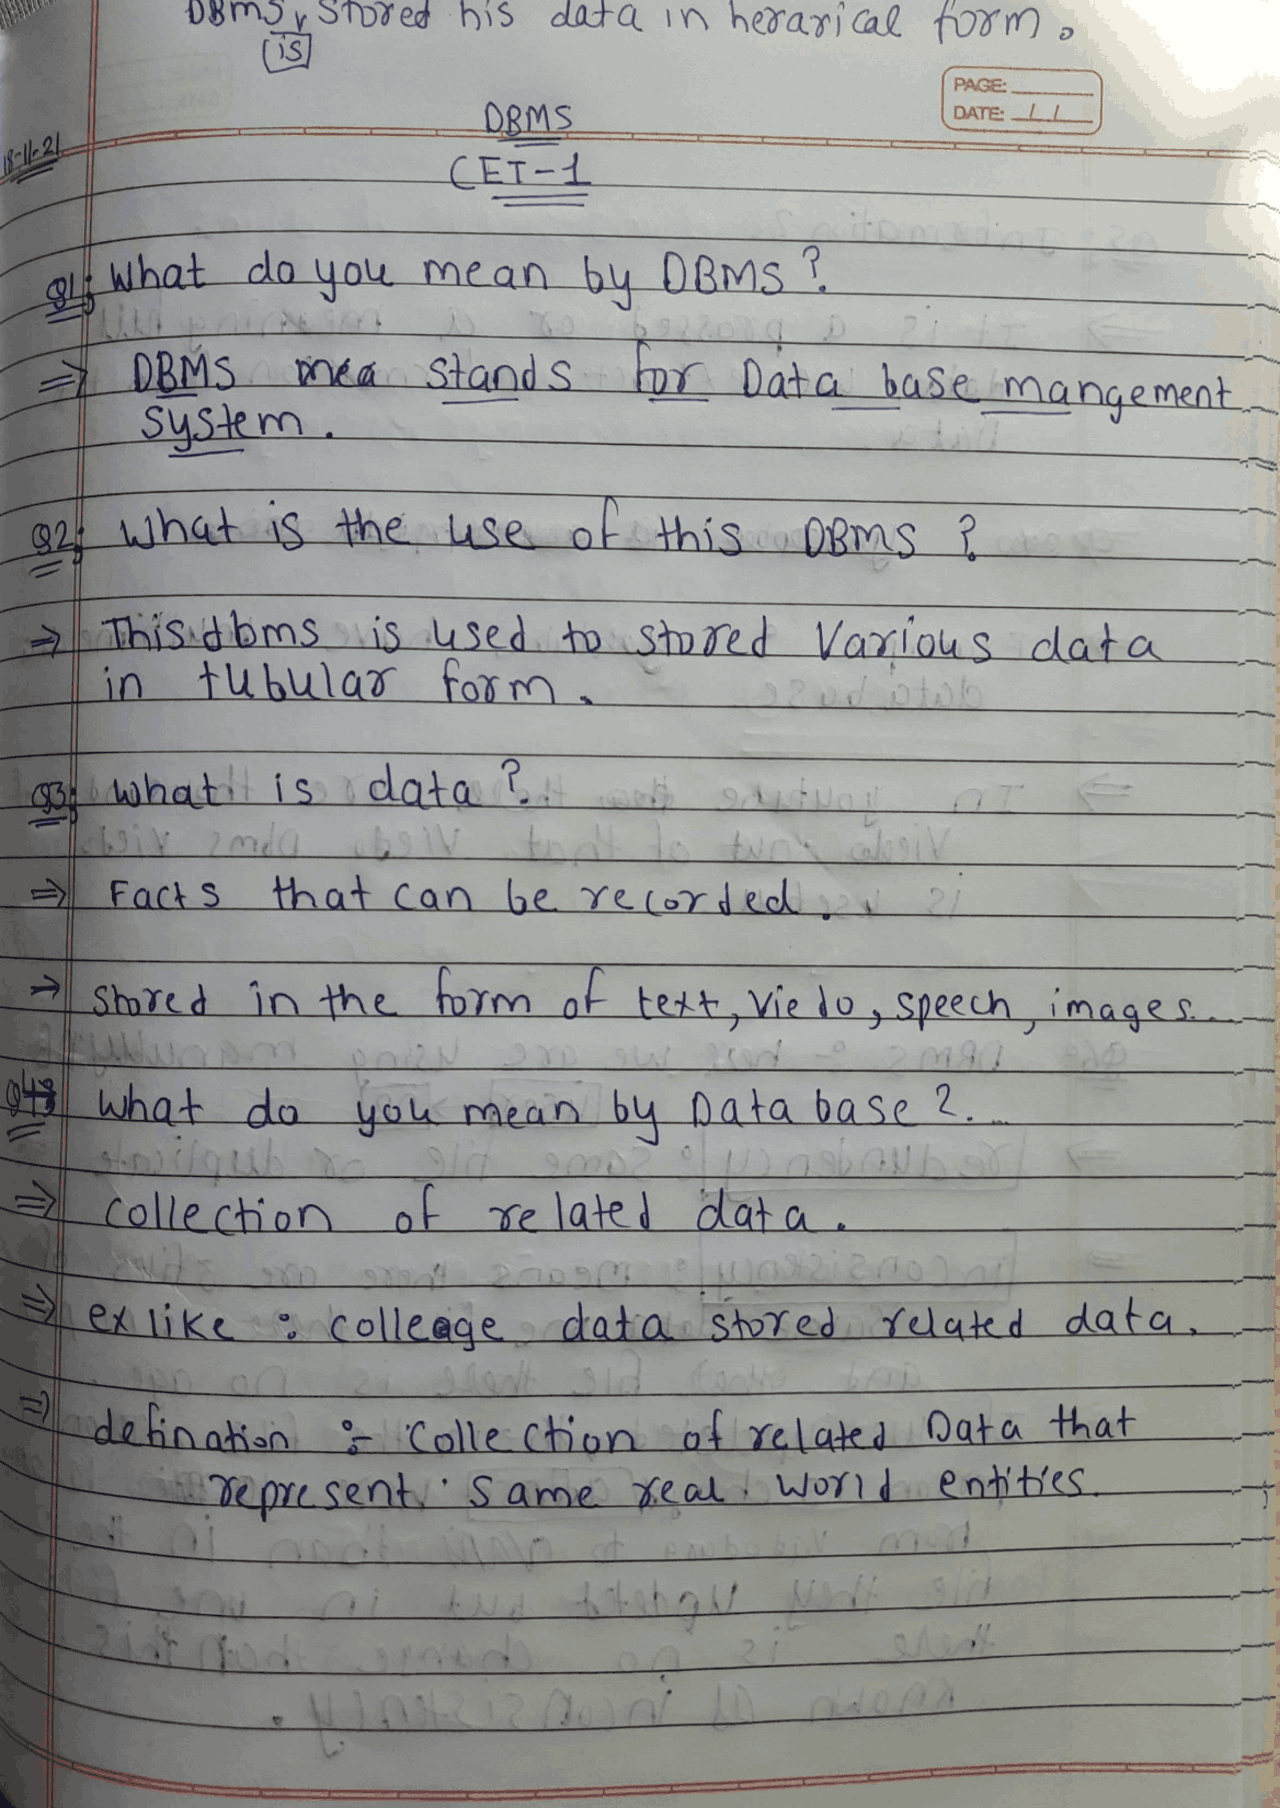 DBMS, stored his data in herarical form.
is
PAGE:
DATE: / /
DBMS
18-11-21
CET-1
Q1; What do you mean by DBMS?
⇒ DBMS mea stands for Data base mangement
system.
Q2; What is the use of this DBMS ?
⇒ This dbms is used to stored Various data
in tubular form.
Q3; What is data?
⇒ Facts that can be recorded.
⇒ Stored in the form of text, Viedo, speech, images.
Q4; What do you mean by Data base?
⇒ Collection of related data.
⇒ ex like : colleage data stored related data.
⇒ defination :- Collection of related Data that
represent same real world entities.